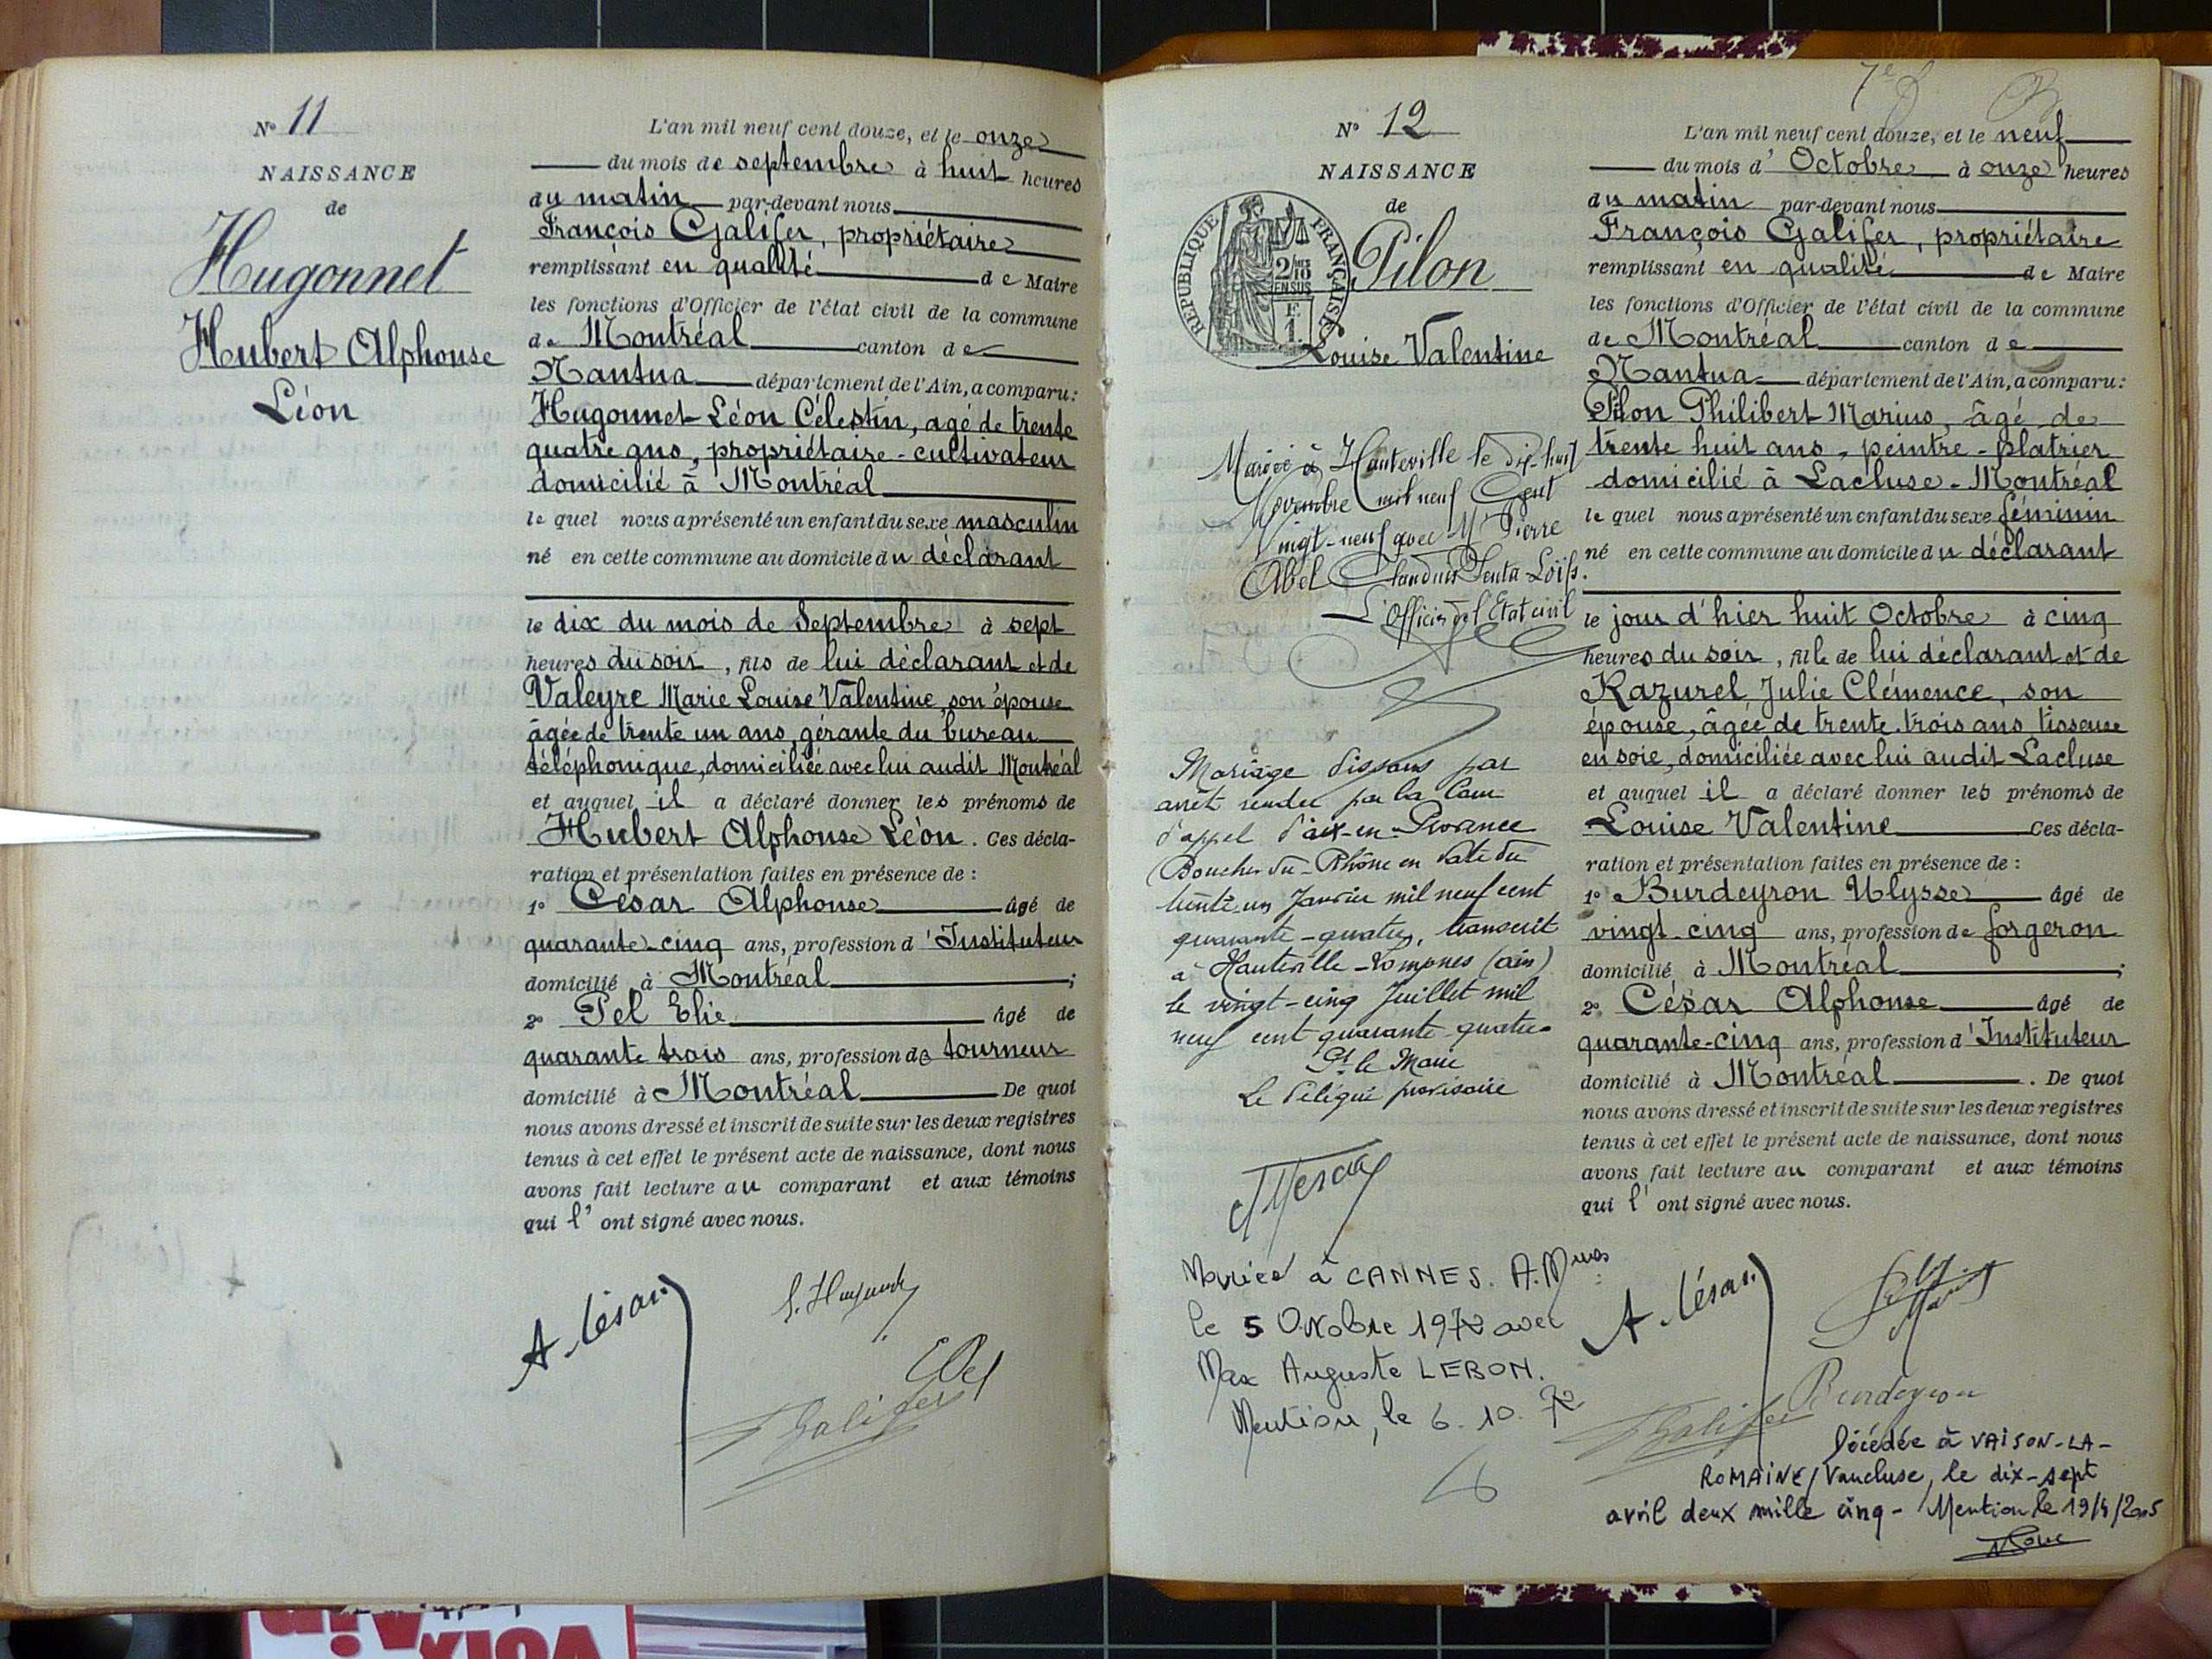 N° 11
NAISSANCE
de
Hugonnet
Hubert Alphonse
Léon
L'an mil neuf cent douze, et le onze
du mois de septembre à huit heures
du matin par-devant nous
François Galifer, propriétaire
remplissant en qualité de Maire
les fonctions d'Officier de l'état civil de la commune
de Montréal canton de
Nantua département de l'Ain, a comparu:
Hugonnet Léon Célestin, agé de trente
quatre ans, propriétaire-cultivateur
domicilié à Montréal
le quel nous a présenté un enfant du sexe masculin
né en cette commune au domicile du déclarant
le dix du mois de Septembre à sept
heures du soir, fils de lui déclarant et de
Valeyre Marie Louise Valentine, son épouse
âgée de trente un ans, gérante du bureau
téléphonique, domiciliée avec lui audit Montréal
et auquel il a déclaré donner les prénoms de
Hubert Alphonse Léon. Ces décla-
ration et présentation faites en présence de :
1° César Alphonse âgé de
quarante-cinq ans, profession d'Instituteur
domicilié à Montréal ;
2° Pel Elie âgé de
quarante trois ans, profession de tourneur
domicilié à Montréal De quoi
nous avons dressé et inscrit de suite sur les deux registres
tenus à cet effet le présent acte de naissance, dont nous
avons fait lecture au comparant et aux témoins
qui l'ont signé avec nous.
A. César
L. Hugonnet
E Pel
Galifer
7e
N° 12
NAISSANCE
de
REPUBLIQUE FRANÇAISE
2/10
EN SUS
Pilon
Louise Valentine
Mariée à Hauteville le dix-huit
Novembre mil neuf Cent
Vingt-neuf avec Mr Pierre
Abel Claudius
L'Officier de l'Etat civil
Mariage dissous par
arrêt rendu par la Cour
d'appel d'aix-en-Provence
(Bouches-du-Rhône en date du
trente-un Janvier mil neuf cent
quarante-quatre, transcrit
à Hauteville-Lompnes (ain)
le vingt-cinq Juillet mil
neuf cent quarante-quatre
Pr le Maire
Le Délégué provisoire
Mariée à CANNES. A.Mmes
le 5 Octobre 1972 avec
Max Auguste LEBON.
Mention, le 6.10.72
L'an mil neuf cent douze, et le neuf
du mois d'Octobre à onze heures
du matin par-devant nous
François Galifer, propriétaire
remplissant en qualité de Maire
les fonctions d'Officier de l'état civil de la commune
de Montréal canton de
Nantua département de l'Ain, a comparu:
Pilon Philibert Marius, âgé de
trente huit ans, peintre-platrier
domicilié à Lacluse-Montréal
le quel nous a présenté un enfant du sexe féminin
né en cette commune au domicile du déclarant
le jour d'hier huit Octobre à cinq
heures du soir, fille de lui déclarant et de
Kazurel Julie Clémence, son
épouse, âgée de trente-trois ans tisseuse
en soie, domiciliée avec lui audit Lacluse
et auquel il a déclaré donner les prénoms de
Louise Valentine Ces décla-
ration et présentation faites en présence de :
1° Burdeyron Ulysse âgé de
vingt-cinq ans, profession de forgeron
domicilié à Montréal ;
2° César Alphonse âgé de
quarante-cinq ans, profession d'Instituteur
domicilié à Montréal . De quoi
nous avons dressé et inscrit de suite sur les deux registres
tenus à cet effet le présent acte de naissance, dont nous
avons fait lecture au comparant et aux témoins
qui l'ont signé avec nous.
A. César
Burdeyron
Galifer
Décédée à VAISON-LA-
ROMAINE/Vaucluse, le dix-sept
avril deux mille cinq - Mention le 19/4/2005
VOIX